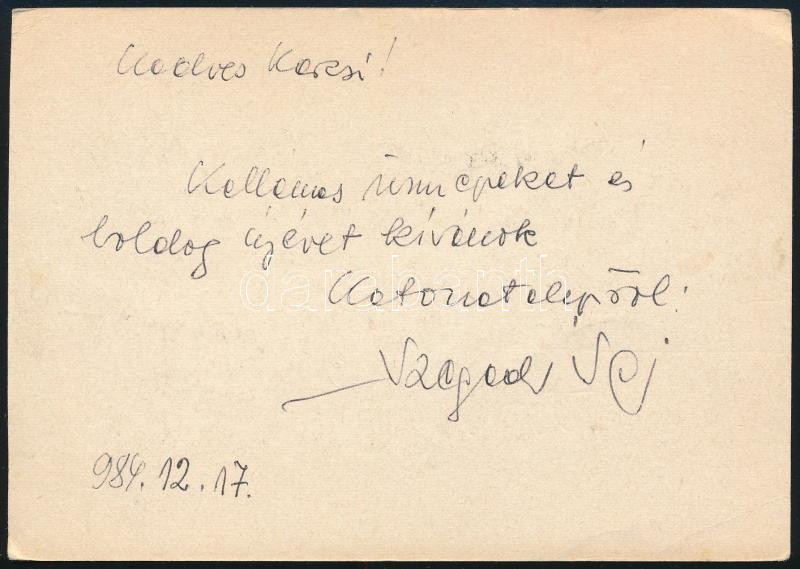 Kedves Karcsi!
Kellemes ünnepeket és
boldog újévet kívánok
Katonatelepről:
984.12.17.
darabanth